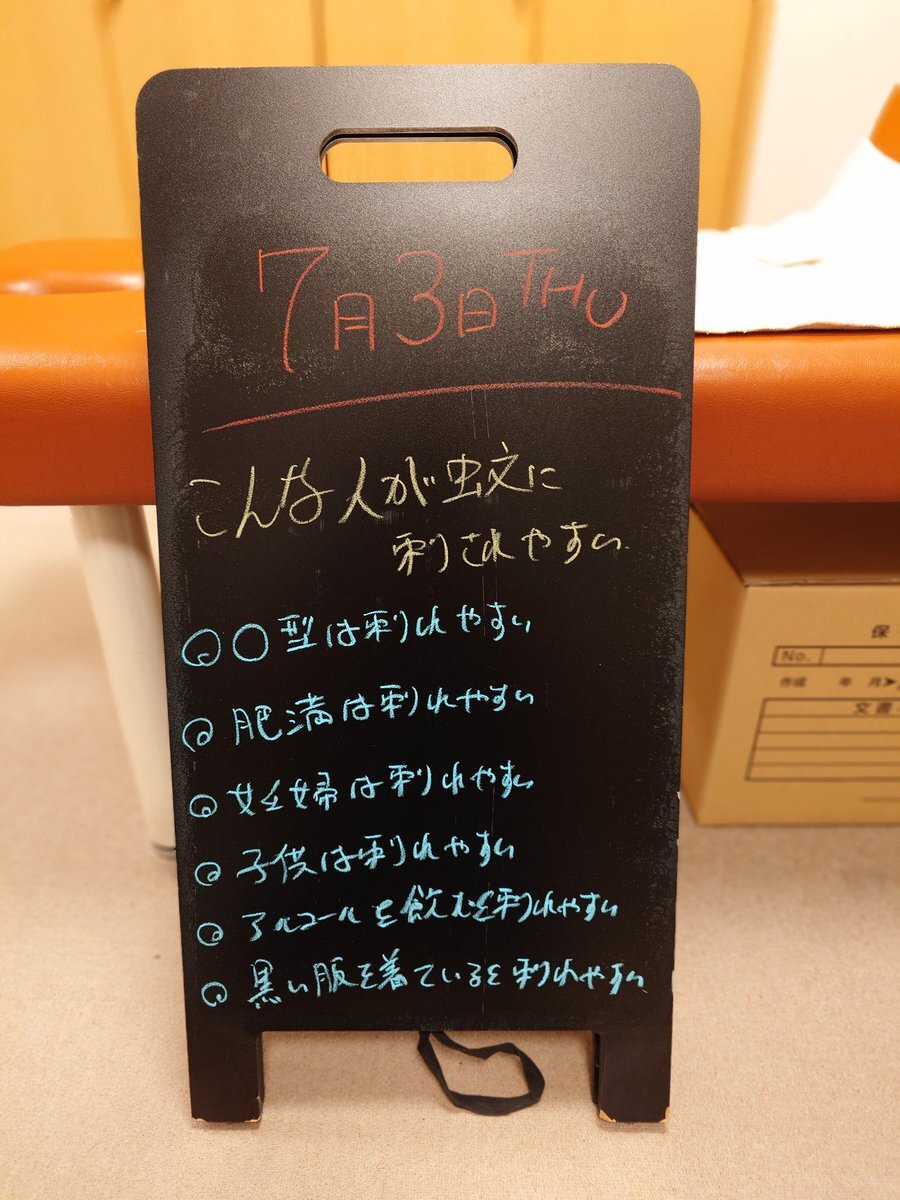 7月3日THU
こんな人が蚊に
刺されやすい
◎O型は刺れやすい
◎肥満は刺れやすい
◎妊婦は刺れやすい
◎子供は刺れやすい
◎アルコールを飲むと刺れやすい
◎黒い服を着ていると刺れやすい
保
No.
作成 年 月
文書